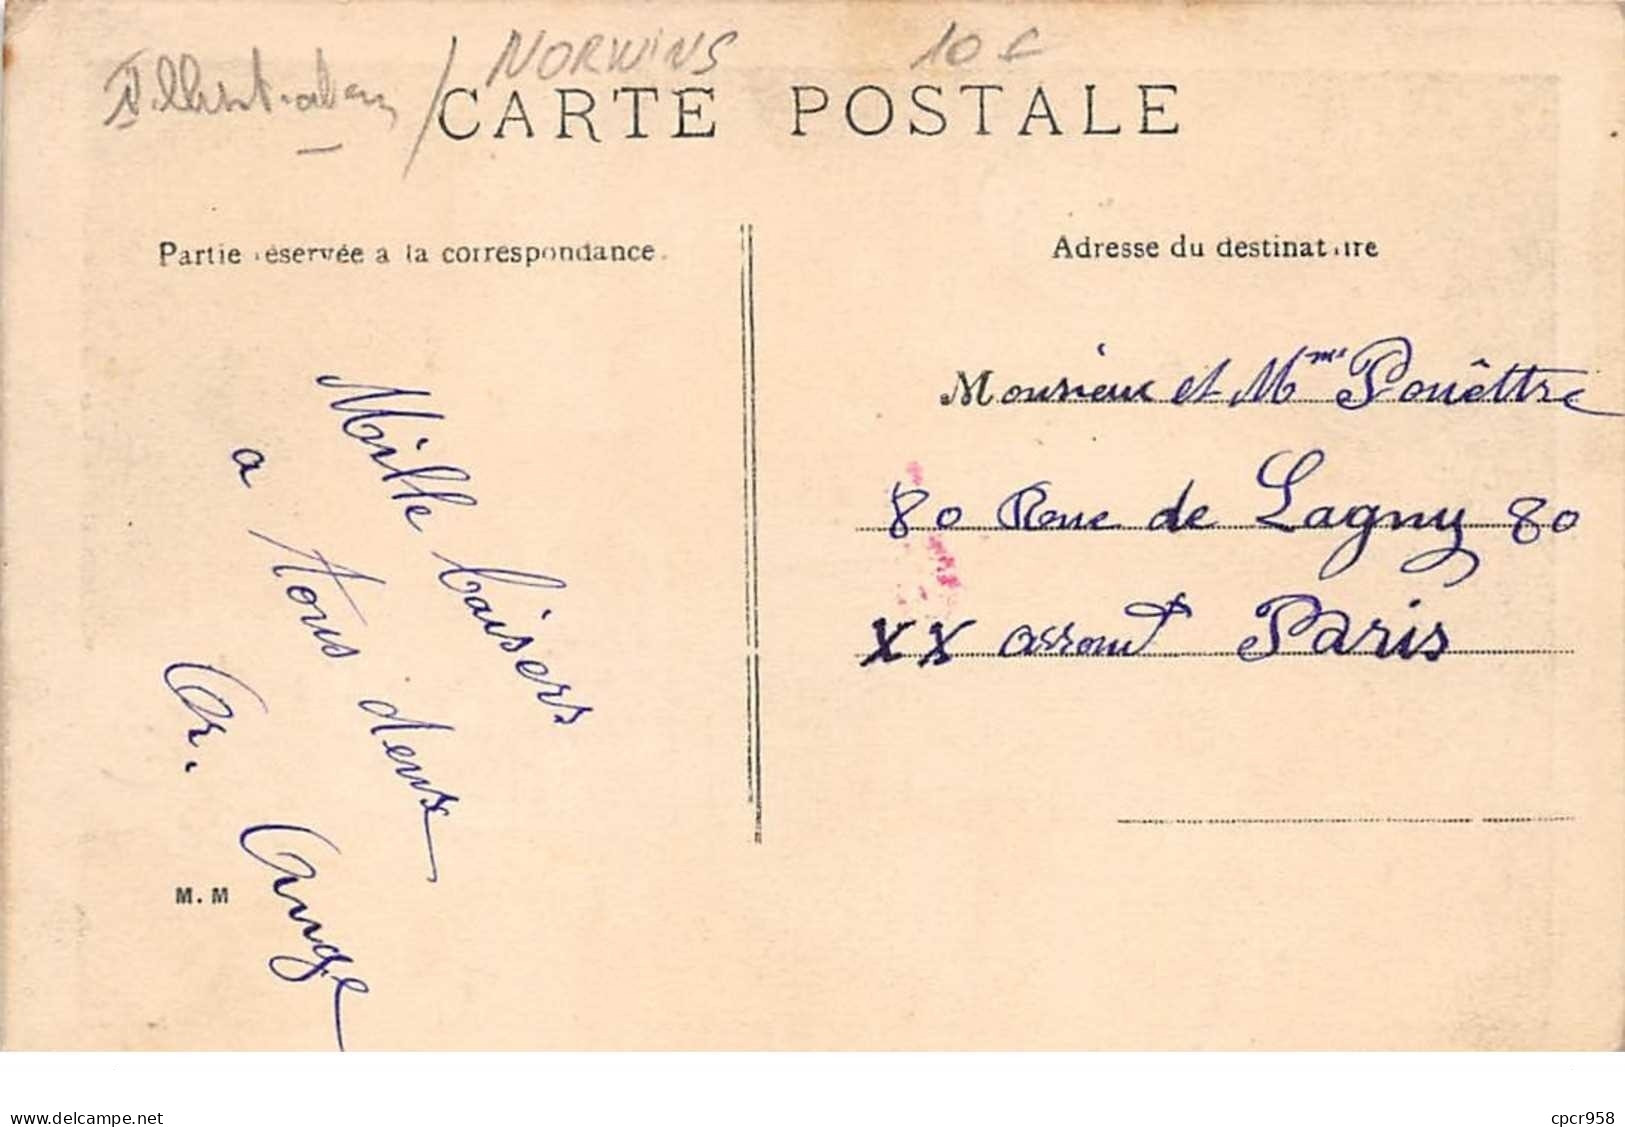 Illustrateur / NORWINS 10€
CARTE POSTALE
Partie réservée a la correspondance.
Adresse du destinataire
Mille baisers
a tous deux
Ar. Ange
M. M
Monsieur et Mme Pouêttre
80 Rue de Lagny 80
XX arromt Paris
www.delcampe.net
cpcr958